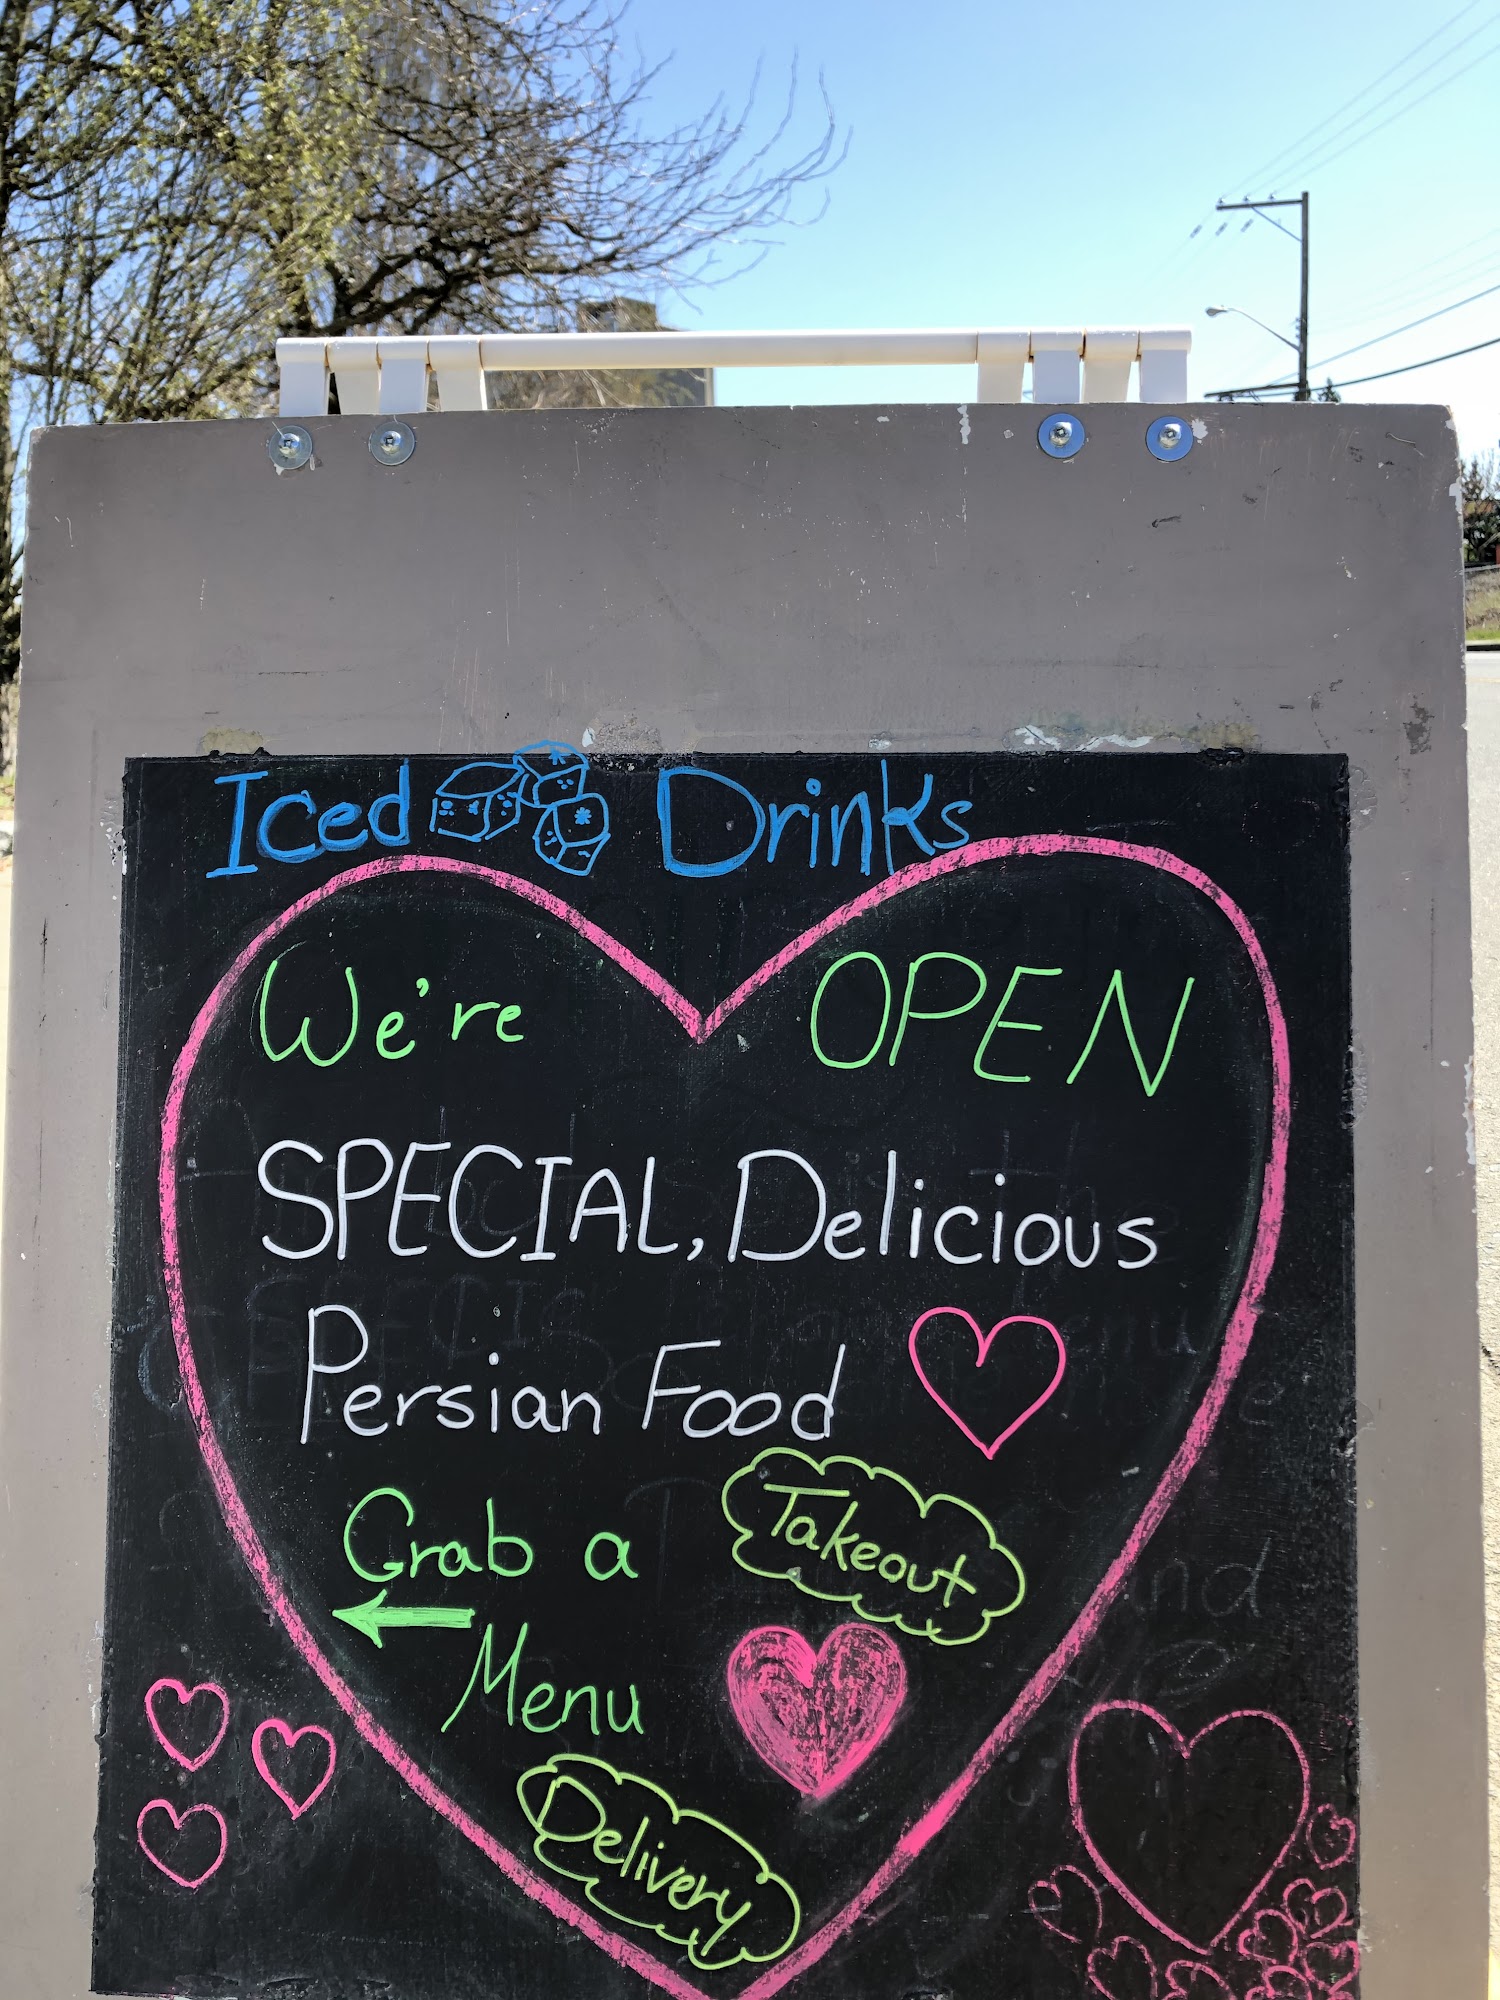 Iced Drinks
We're OPEN
SPECIAL, Delicious
Persian Food
Grab a
Takeout
Menu
Delivery